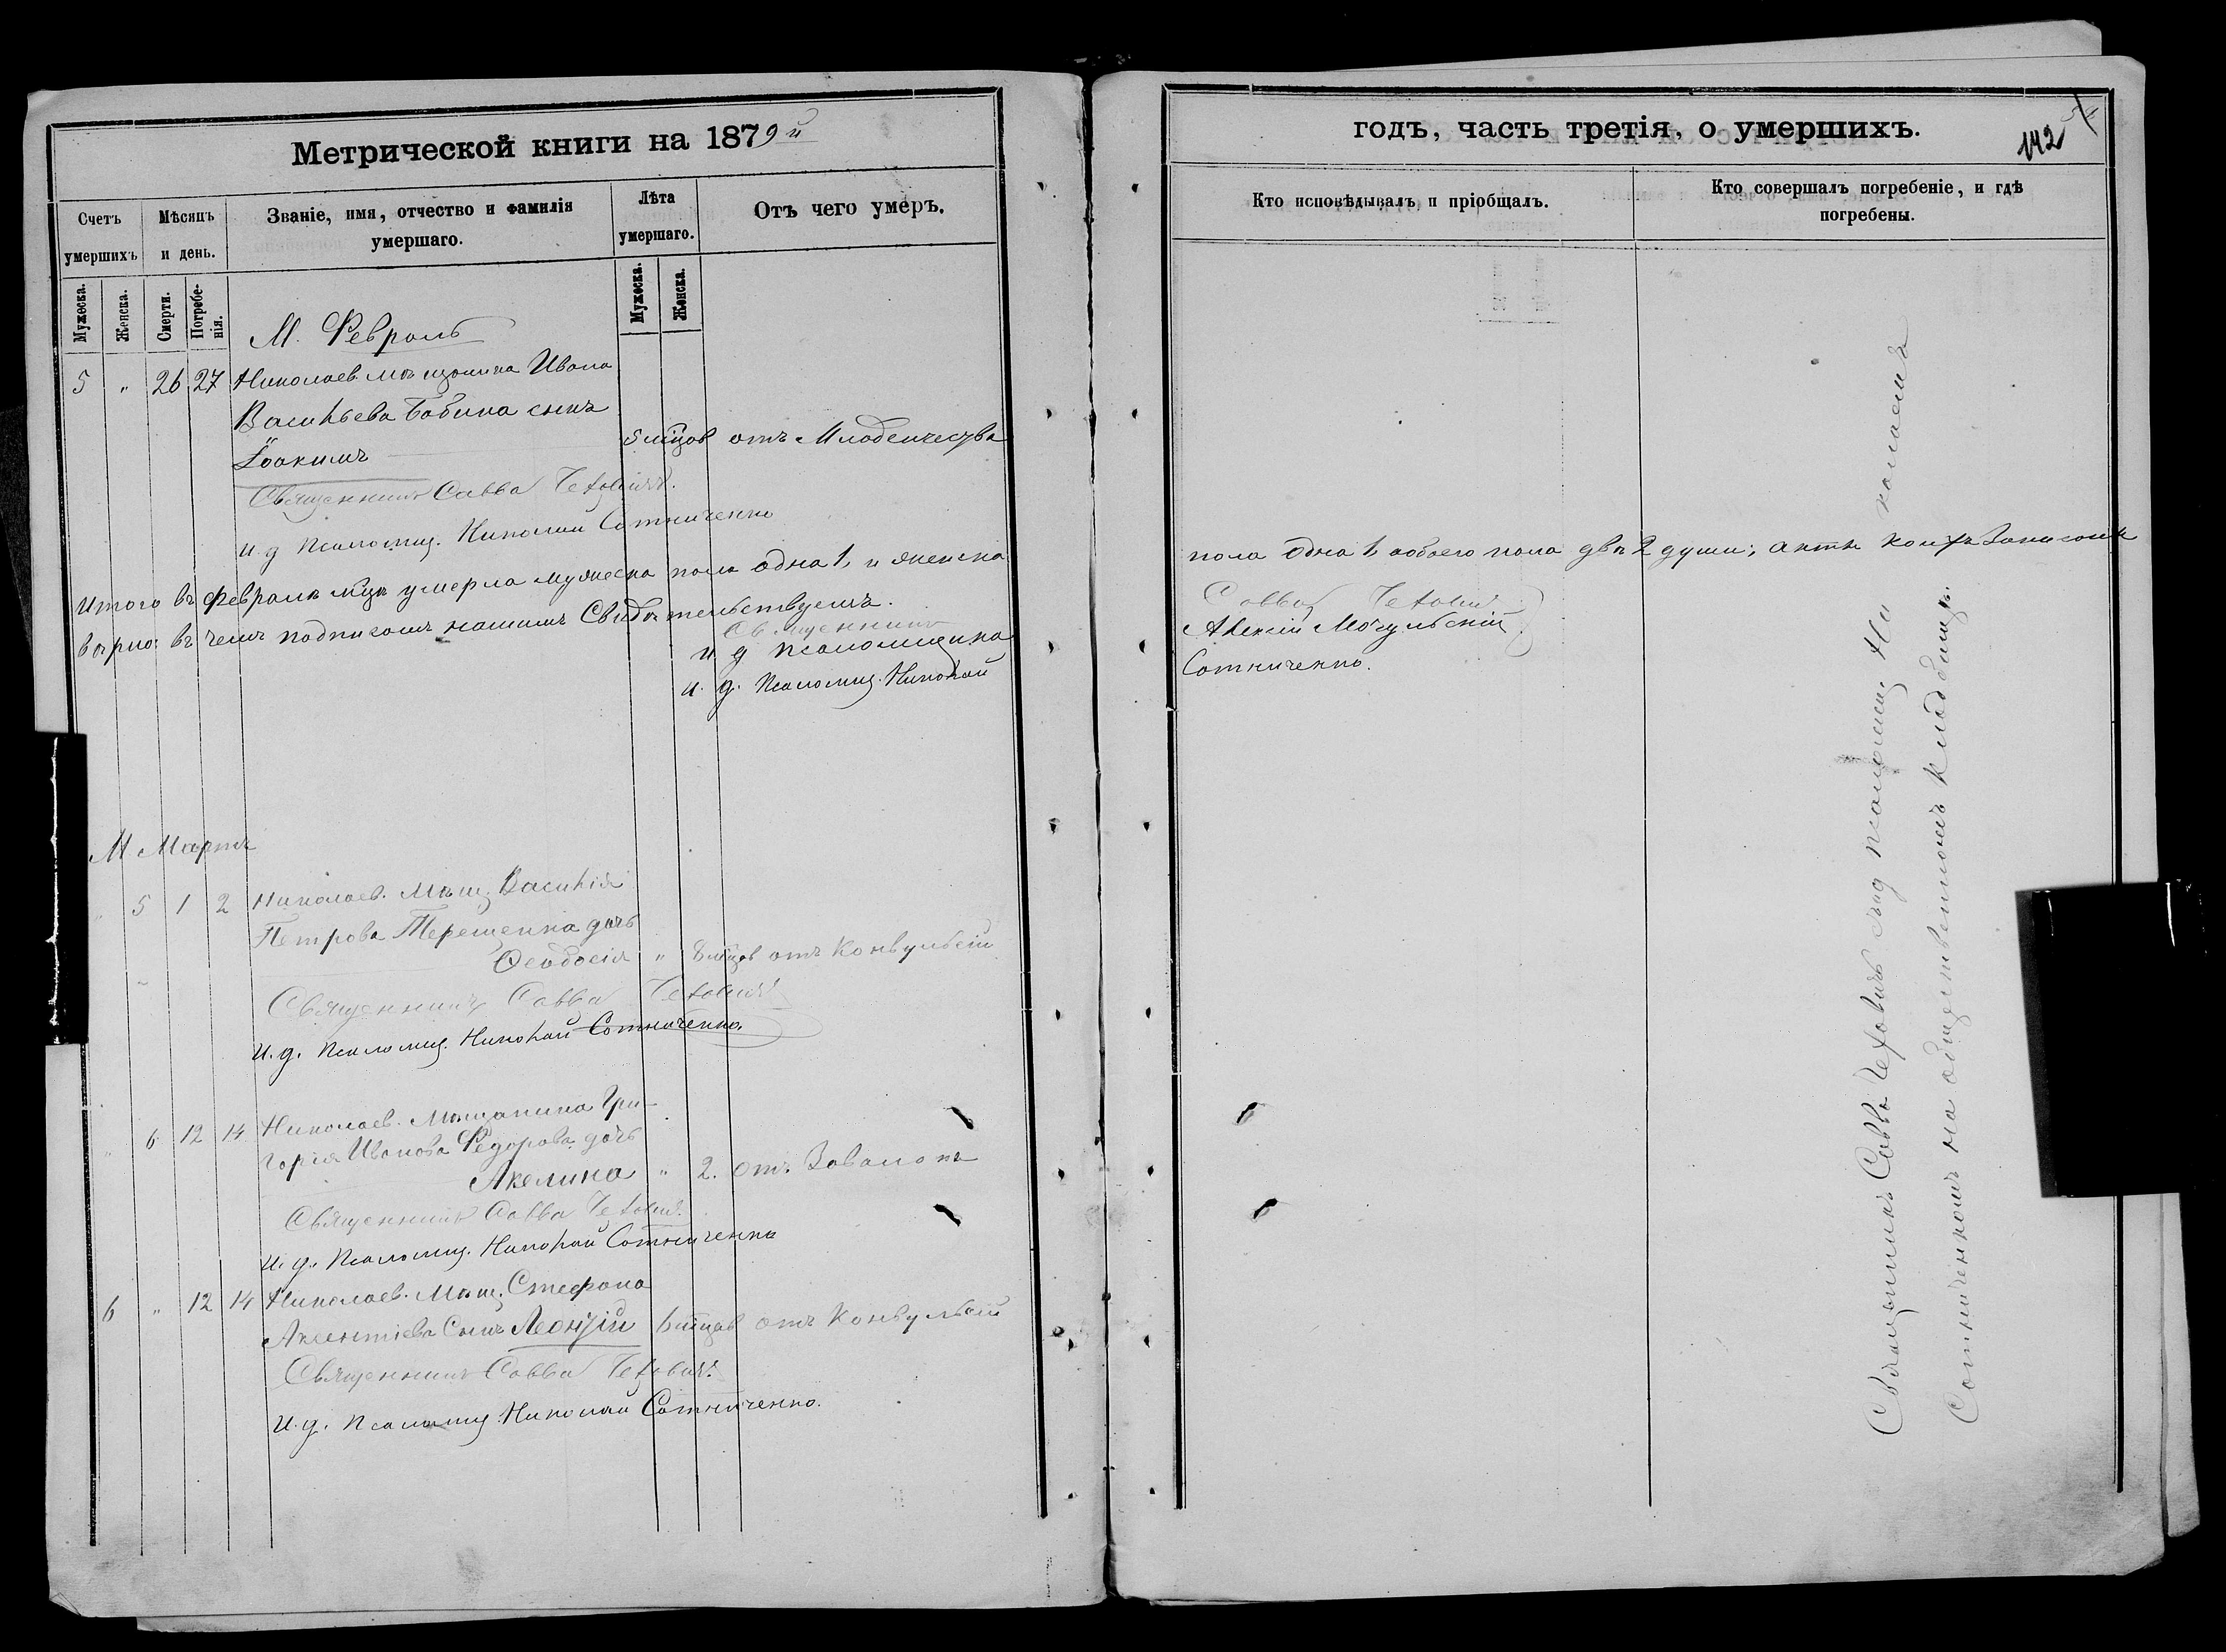 Метрической книги на 1879й
Счетъ умершихъ
Мѣсяцъ и день.
Званіе, имя, отчество и фамилія умершаго.
Лѣта умершаго.
Отъ чего умеръ.
Мужеска.
Женска.
Смерти.
Погребенія.
Мужеска.
Женска.
М. Февраль
5 " 26 27 Николаев. мѣщанина Ивана
Васильева Бабина сынъ
Іоакимъ
5 мѣцов отъ Младенчества
Священникъ Савва Чеховичъ.
И. д Псаломщ. Николай Сотниченко
Итого въ Февралѣ мцѣ умерло мужеска пола одна 1, и женска
вѣрно: въ чемъ подписомъ нашимъ Свидѣтельствуемъ.
Священникъ
и д псаломщика
и. д. Псаломщ. Николай
М Мартъ
" 5 1 2 Николаев. Мѣщ. Василія
Петрова Терещенка дочь
Ѳеодосія " 8 мѣцов отъ Конвульсій
Священникъ Савва Чеховичъ
И. д. Псаломщ. Николай Сотниченко.
" 6 12 14 Николаев. Мѣщанина Гри-
горія Иванова Федорова дочь
Акелина " 2. от. Завалокъ
Священникъ Савва Чеховичъ.
И. д. Псаломщ. Николай Сотниченко
6 " 12 14 Николаев. Мѣщ. Стефана
Аксентіева Сынъ Леонтій 6 мѣцов отъ Конвульсій
Священникъ Савва Чеховичъ.
И. д. Псаломщ. Николай Сотниченко.
годъ, часть третія, о умершихъ.
142
Кто исповѣдывалъ и пріобщалъ.
Кто совершалъ погребеніе, и гдѣ погребены.
пола одна 1, аобоего пола двѣ 2 души; актъ
Савва Чеховичъ
Алексій Могульскій
Сотниченко.
Священникъ Савва Чеховичъ съ и д псаломщ. Николаемъ
Сотниченкомъ на общественномъ кладбищѣ.